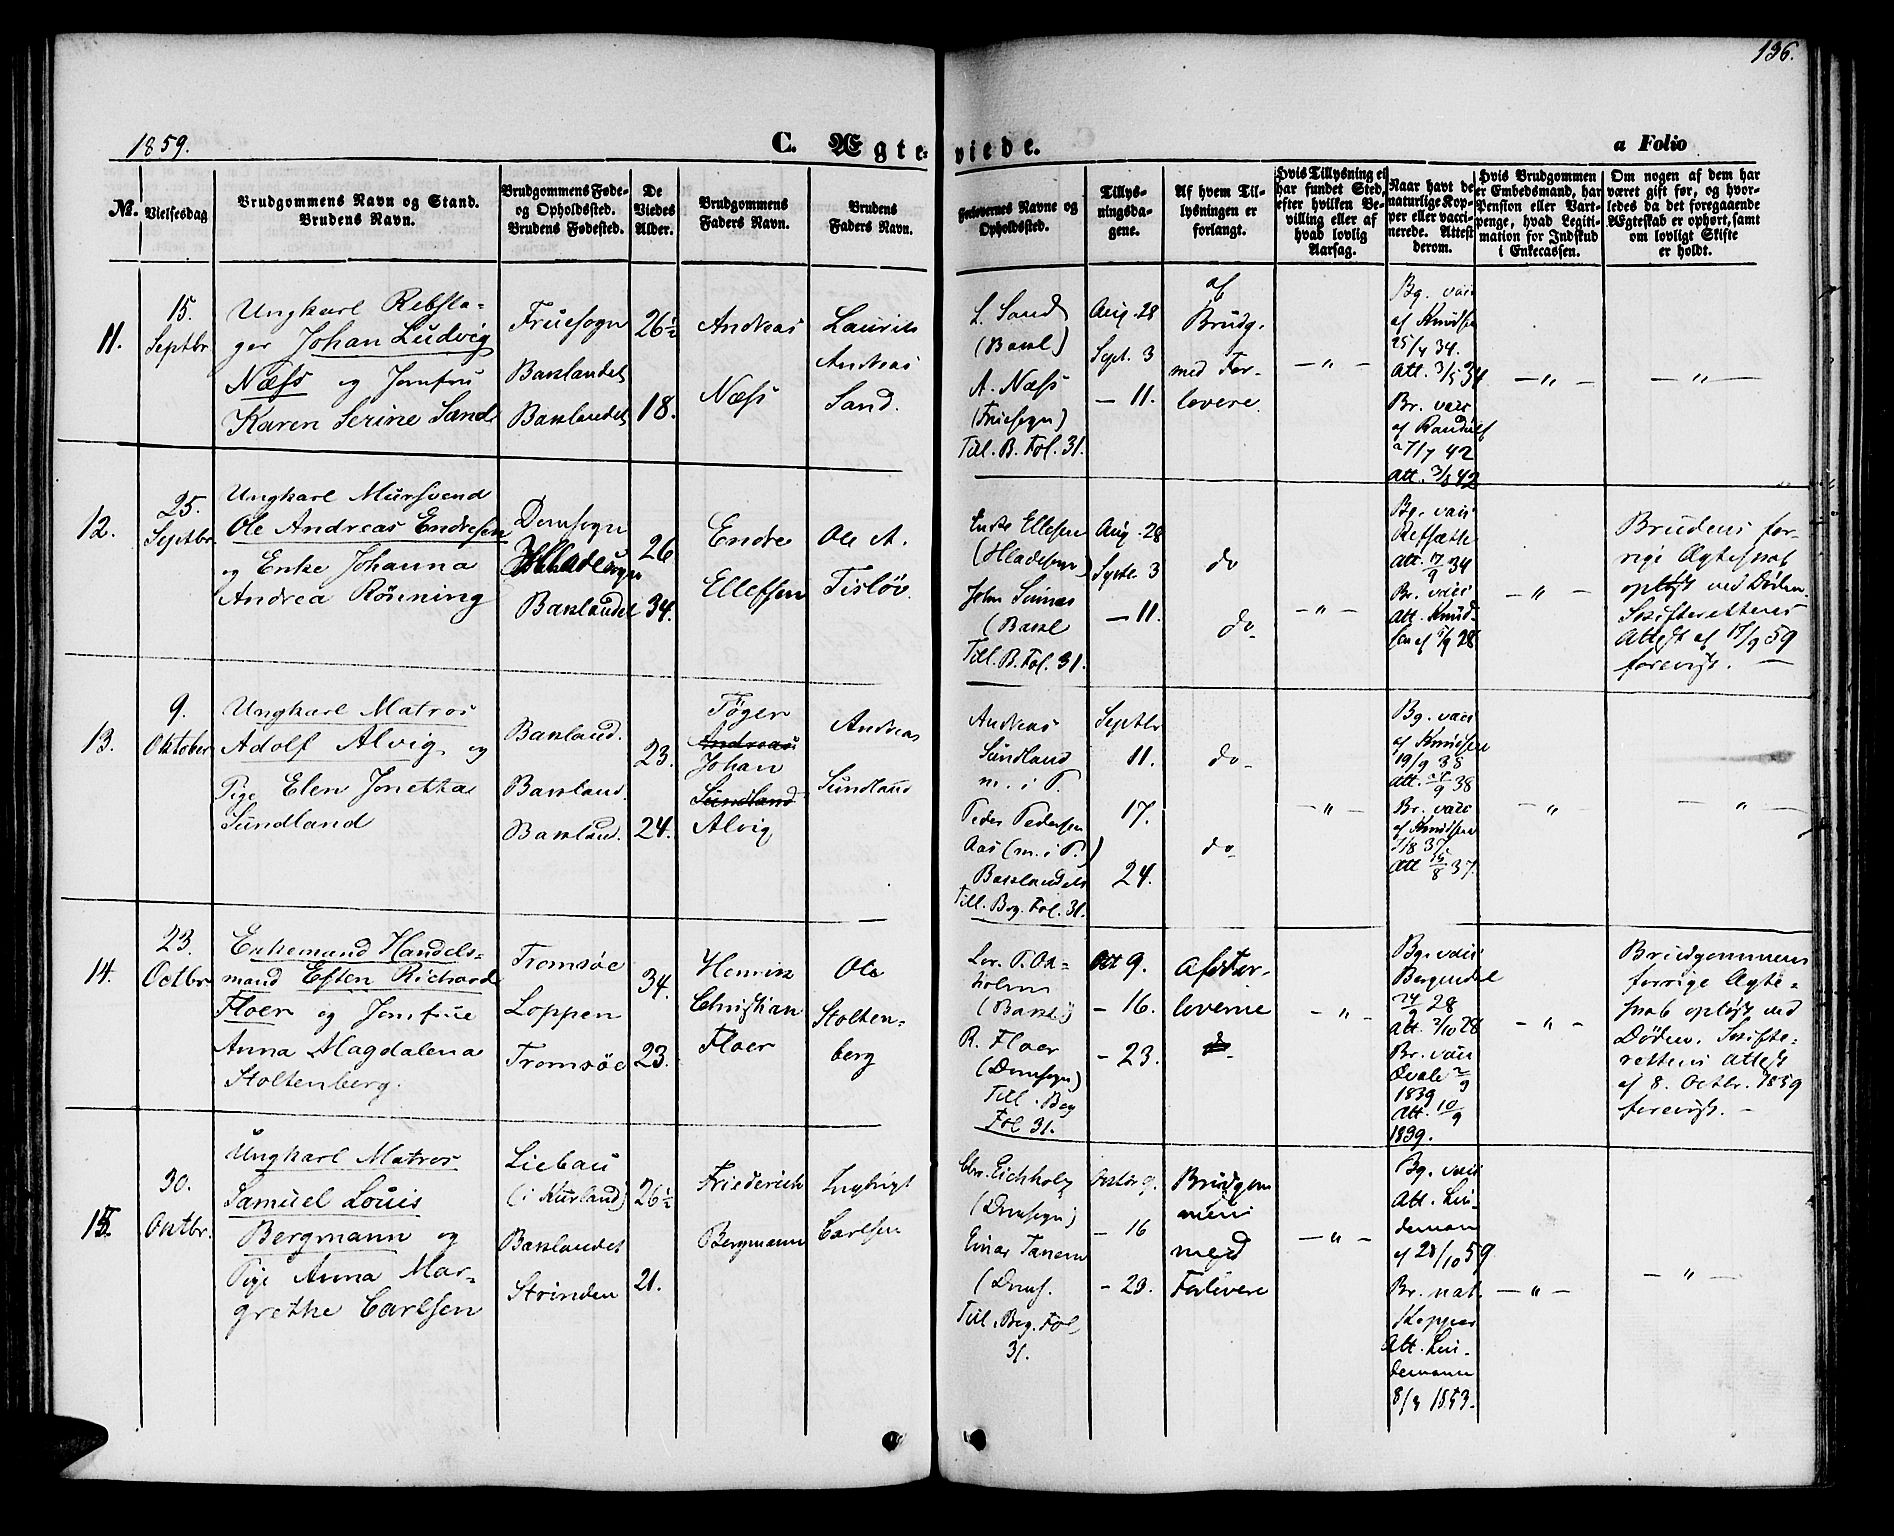 136.
1859.
C. Ægteviede.
a Folio
No.
Vielsesdag
Brudgommens Navn og Stand.
Brudens Navn.
Brudgommens Føde-
og Opholdssted.
Brudens Fødested.
De
Viedes
Alder.
Brudgommens
Faders Navn.
Brudens
Faders Navn.
Forlovernes Navne og
Opholdssted.
Tillys-
ningsda-
gene.
Af hvem Til-
lysningen er
forlangt.
Hvis Tillysning ei
har fundet Sted,
efter hvilken Be-
villing eller af
hvad lovlig
Aarsag.
Naar havt de
naturlige Kop-
per eller vacci-
nerede. Attest
derom.
Hvis Brudgommen
er Embedsmand, har
Pension eller Vart-
penge, hvad Legiti-
mation for Indskud
i Enkecassen.
Om nogen af dem har
været gift før, og hvor-
ledes da det foregaaende
Ægteskab er ophørt, samt
om lovligt Skifte
er holdt.
11.
15.
Septbr
Ungkarl Rebsla-
ger Johan Ludvig
Næss og Jomfru
Karen Serine Sand
Fruesogn
Baklandet
Baklandet
26½
18.
Andreas
Næss
Laurits
Andreas
Sand.
L. Sand
(Bakl)
A. Næss
(Fruesogn)
Till. B. Fol. 31.
Aug. 28
Sept. 3
— 11.
af
Brudg.
med For-
lovere.
— " —
Bg. vacc
af Knudsen
25/4 34.
Att. 3/5 34
Br. vacc
af Randulf
27/7 42
Att. 3/8 42
— " —
— " —
12.
25.
Septbr.
Ungkarl Mursvend
Ole Andreas Endresen
og Enke Johanna
Andrea Rönning
Domsogn
Hladesogn
Baklandet
26
34.
Endre
Ellefsen
Ole A.
Tisløv.
Endre Ellefsen
(Hladesogn)
John
(Bakl
Till. B. Fol. 31.
Aug. 28
Septbr. 3
— 11.
do
do
— " —
Bg. vacc
Att. 17/9 34
Br. vacc
Att. Knud-
sen af 1/9 28
— " —
Brudens for-
rige Ægteskab
opløst ved Døden.
Skifterettens
Attest af 17/9 59
forevist. —
13.
9.
Oktober
Ungkarl Matros
Adolf Alvig og
Pige Elen Jonetta
Sundland
Bakland.
Bakland.
Bakland.
23.
24.
Töger
Andreas
Johan
Sundland
Alvig
Andreas
Sundland
Andreas
Sundland
m. i P.
Peder Pedersen
Aas (m. i P.)
Baklandet
Till. Beg. Fol. 31.
Septbr
11.
17.
24.
do
do
— " —
Bg. vacc
af Knudsen
19/9 38
Att. 27/9 38
Br. vacc
af Knudsen
7/8 37
Att 15/8 37.
— " —
— " —
14.
23.
Octbr
Enkemand Handels-
mand Eften Richard
Floer og Jomfrue
Anna Magdalena
Stoltenberg.
Tromsöe
Loppen
Tromsöe
34.
23.
Henrik
Christian
Floer
Ole
Stolten-
berg
Lor. P. Ok-
holm
(Bakl.)
R. Floer
(Domsogn)
Till. Beg
Fol 31.
Oct 9.
— 16.
— 23.
Af For-
loverne
do
— " —
Bg. vacc
Bergendal
24/9 28
Att. 2/10 28
Br. vacc
Qvale 2/9
1839
Att. 10/9
1839.
— " —
Brudgommens
forrige Ægte-
skab opløst ved
Døden. Skifte-
rettens Attest
af 8. Octbr. 1859
forevist. —
15.
30.
Oktbr.
Ungkarl Matros
Samuel Louis
Bergmann og
Pige Anna Mar-
grethe Carlsen
Liebau
(i Kurland)
Baklandet
Strinden
26½
21.
Friederich
Bergmann
Ingbrigt
Carlsen
Chr. Eichholz
(Domsogn)
Einar Tanem
(Doms.
Till. Beg. Fol.
31.
Octbr 9.
— 16
— 23.
Brudgom
mens
med
Forlovere
— " —
Bg. vacc
Att. Lin-
demann
af 28/10 59
Br. nat.
Kopper
Att. Lin-
demann
8/8 1853.
— " —
— " —